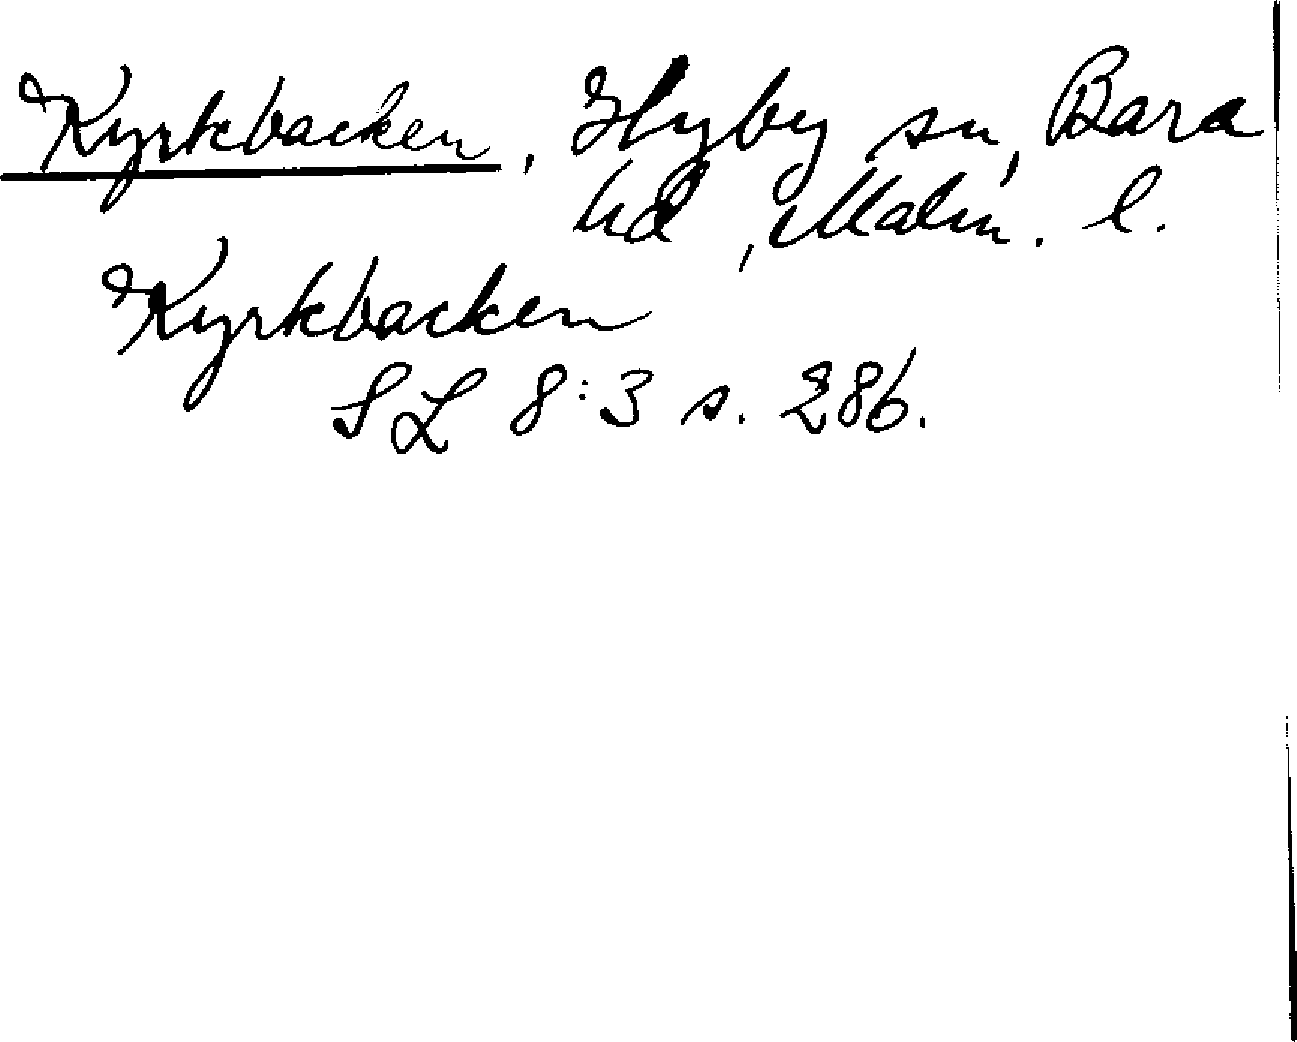 Kyrkbacken, Hyby sn, Bara
hd, Malm. l.
Kyrkbacken
SL 8:3 s. 286.